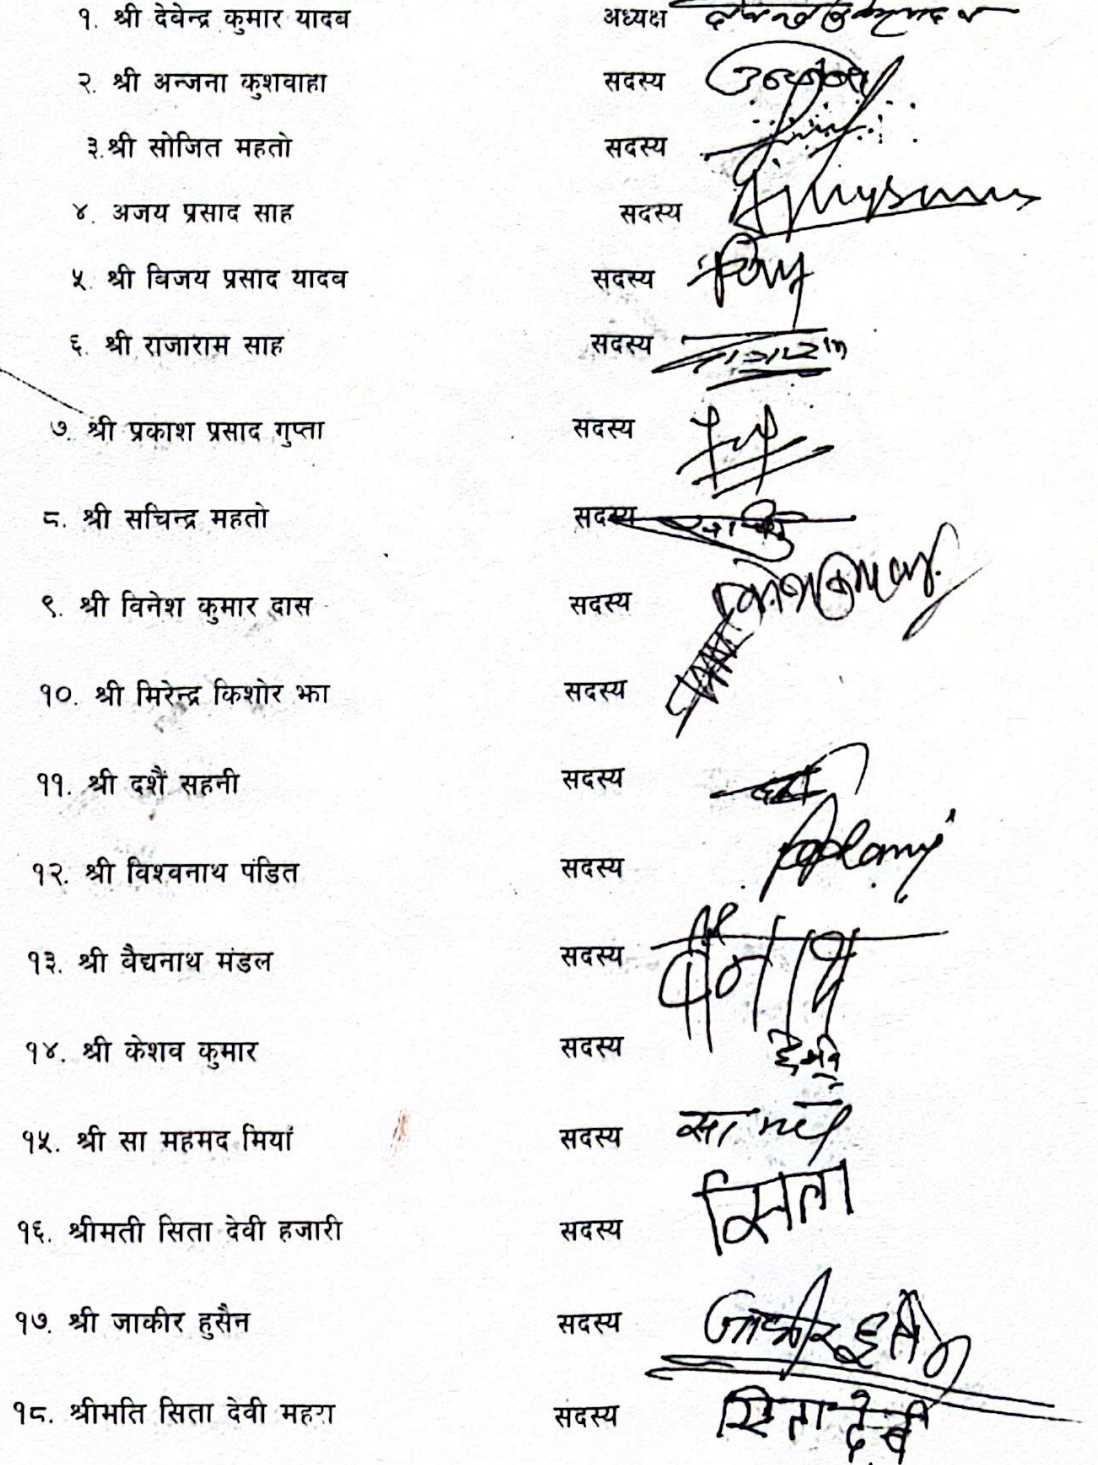 १. श्री देवेन्द्र कुमार यादव अध्यक्ष
२. श्री अन्जना कुशवाहा सदस्य
३.श्री सोजित महतो सदस्य
४. अजय प्रसाद साह सदस्य
५. श्री विजय प्रसाद यादव सदस्य
६. श्री राजाराम साह सदस्य राजाराम
७. श्री प्रकाश प्रसाद गुप्ता सदस्य
८. श्री सचिन्द्र महतो सदस्य
९. श्री विनेश कुमार दास सदस्य
१०. श्री मिरेन्द्र किशोर झा सदस्य
११. श्री दशैं सहनी सदस्य
१२. श्री विश्वनाथ पंडित सदस्य
१३. श्री वैद्यनाथ मंडल सदस्य
१४. श्री केशव कुमार सदस्य
१५. श्री सा महमद मियां सदस्य
१६. श्रीमती सिता देवी हजारी सदस्य सिता
१७. श्री जाकीर हुसैन सदस्य जाकीर हुसैन
१८. श्रीमति सिता देवी महरा सदस्य सिता देवी